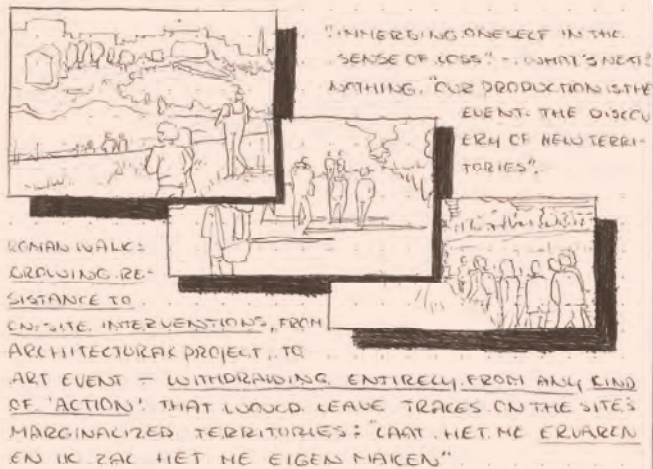 "IMMERSING ONESELF IN THE
SENSE OF LOSS" - WHAT'S NEXT?
NOTHING. "OUR PRODUCTION IS THE
EVENT. THE DISCOV
ERY OF NEW TERRI-
TORIES".
ROMAN WALK:
GROWING RE-
SISTANCE TO
ON-SITE INTERVENTIONS, FROM
ARCHITECTURAL PROJECT, TO
ART EVENT - WITHDRAWING ENTIRELY FROM ANY KIND
OF 'ACTION' THAT WOULD LEAVE TRACES ON THE SITES
MARGINALIZED TERRITORIES: "LAAT HET ME ERVAREN
EN IK ZAL HET ME EIGEN MAKEN"